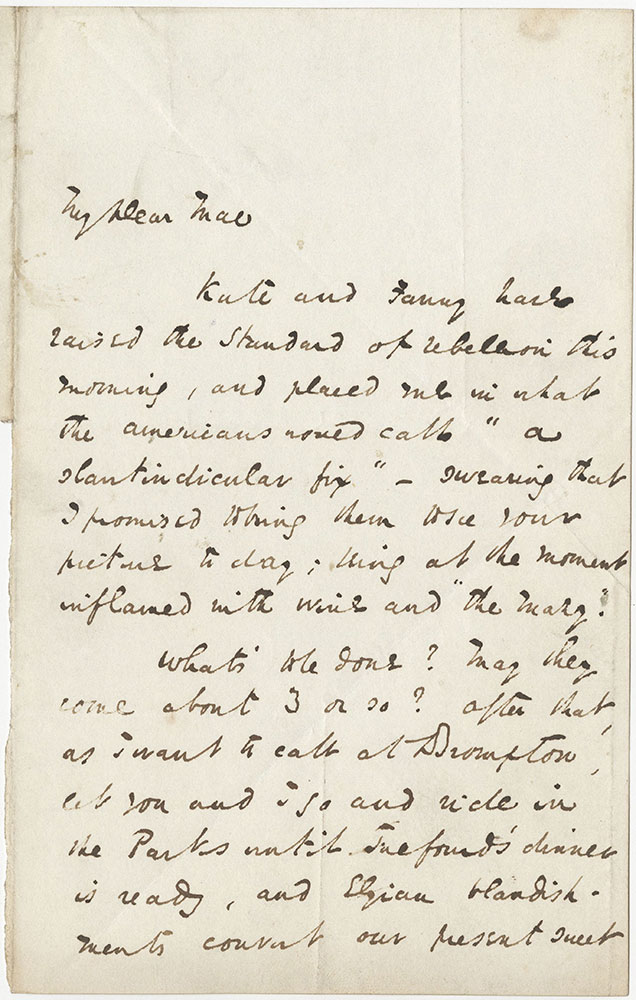 My Dear Mac
Kate and Fanny have
raised the Standard of rebellion this
morning, and placed me in what
the americans would call "a
slantindicular fix" – swearing that
I promised to bring them to see your
picture to day; being at the moment
inflamed with wine and "the mazy."
What's to be done? May they
come about 3 or so? After that,
as I want to call at Brompton,
let you and I go and ride in
the Parks until Talfourd's dinner
is ready, and blandish-
ments convert our present sweet